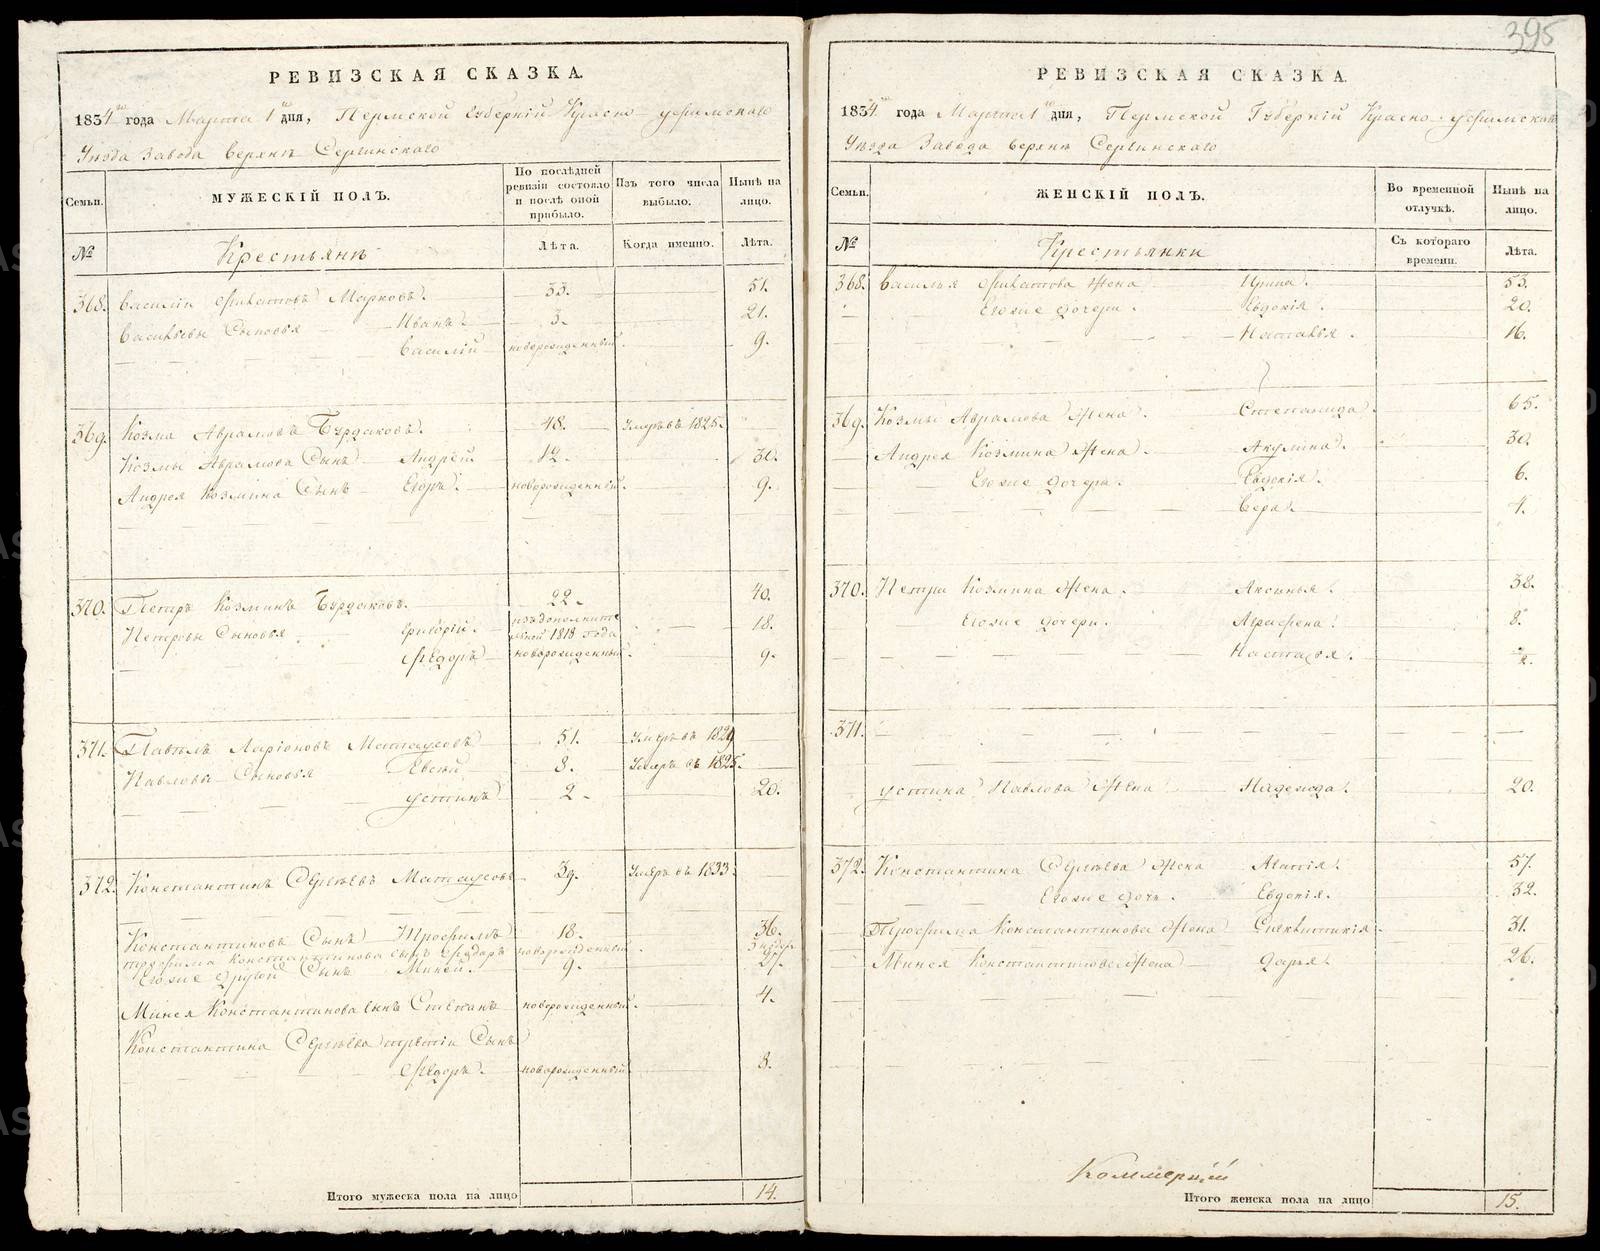 395
РЕВИЗСКАЯ СКАЗКА.
1834 го года Марта 1 го дня, Пермской Губерній Красно-уфимскаго
Уѣзда Завода Верхнѣ Сергинскаго
Семьи.
МУЖЕСКІЙ ПОЛЪ.
По послѣдней ревизіи состояло и послѣ оной прибыло.
Изъ того числа выбыло.
Нынѣ на лицо.
№
Крестьянѣ
Лѣта.
Когда именно.
Лѣта.
368. Василіи Филатовъ Марковъ. 33. 51.
Васильевы Сыновья Иванъ. 3. 21.
Василій новорожденный. 9.
369. Козма Аврамовъ Бурдаковъ. 48. Умеръ въ 1825.
Козмы Аврамова Сынъ Андрей 12. 30.
Андрея Козмина Сынъ Егоръ. новорожденный. 9.
370. Петръ Козминъ Бурдаковъ. 22. 40.
Петровы Сыновья Григорій. изъ дополнительной 1818 года 18.
Федоръ новорожденный. 9.
371. Павелъ Ларіоновъ 51. Умеръ въ 1829
Павловы Сыновья Евсей 8. Умеръ въ 1825.
Устинъ 2. 20.
372. Константинъ Сергѣевъ 39. Умеръ въ 1833.
Константиновъ Сынъ Трофимъ 18. 36.
Трофима Константинова сынъ Федоръ новорожденный
Егоже другой Сынъ Миней. 9. 27.
Минея Константинова сынъ Степанъ новорожденный. 4.
Константина Сергѣева третіи Сынъ
Федоръ. новорожденный. 8.
Итого мужеска пола на лицо 14.
РЕВИЗСКАЯ СКАЗКА.
1834 го года Марта 1 го дня, Пермской Губерній Красно-уфимскаго
Уѣзда Завода Верхнѣ Сергинскаго
Семьи.
ЖЕНСКІЙ ПОЛЪ.
Во временной отлучкѣ.
Нынѣ на лицо.
№
Крестьянки
Съ котораго времени.
Лѣта.
368. Василья Филатова Жена 53.
Егоже дочери. Евдокія. 20.
Наталья. 16.
369. Козмы Аврамова Жена. Степанида. 65.
Андрея Козмина Жена. Акулина. 30.
Егоже дочери. Евдокія. 6.
Вера. 4.
370. Петра Козмина Жена. Аксинья. 38.
Егоже дочери. Аграфена. 8.
Настасья.
371.
Устина Павлова Жена Надежда. 20.
372. Константина Сергѣева Жена Агатія. 57.
Егоже дочь. Евдокія. 32.
Трофима Константинова Жена 31.
Минея Константинова Жена Дарья. 26.
Итого женска пола на лицо 15.